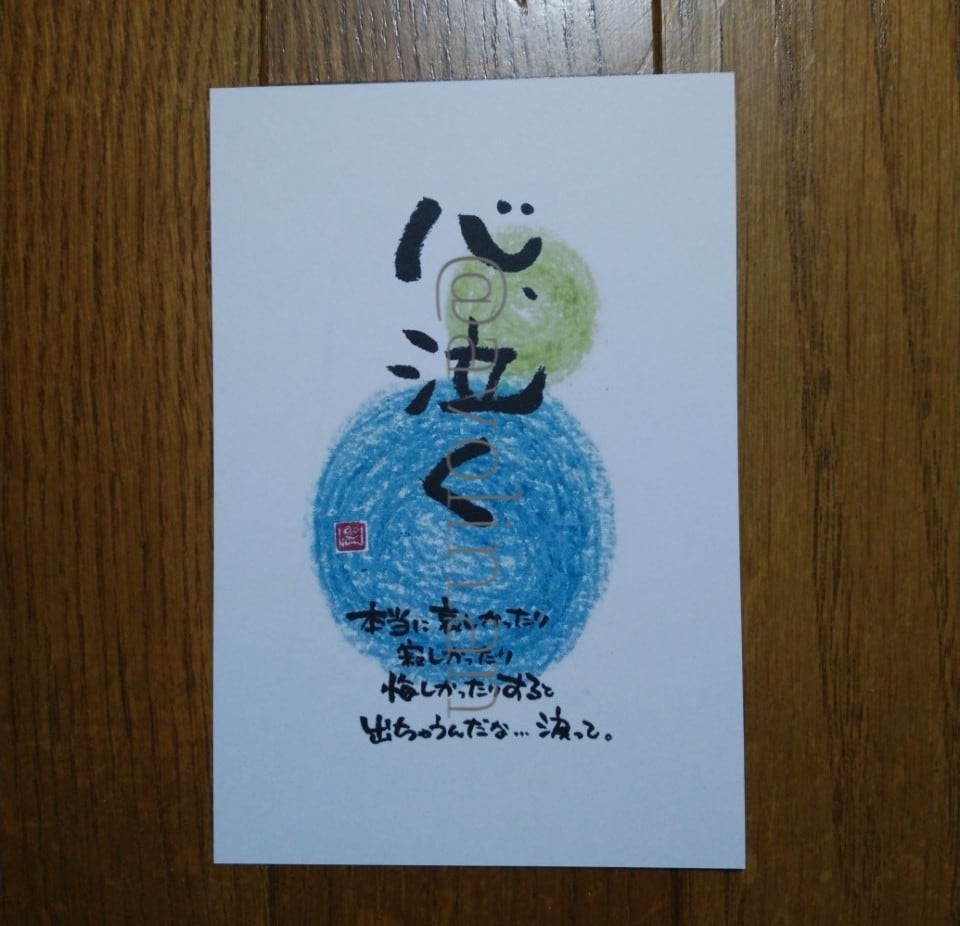 心、
泣
く
本当に哀しかったり
寂しかったり
悔しかったりすると
出ちゃうんだな…涙って。